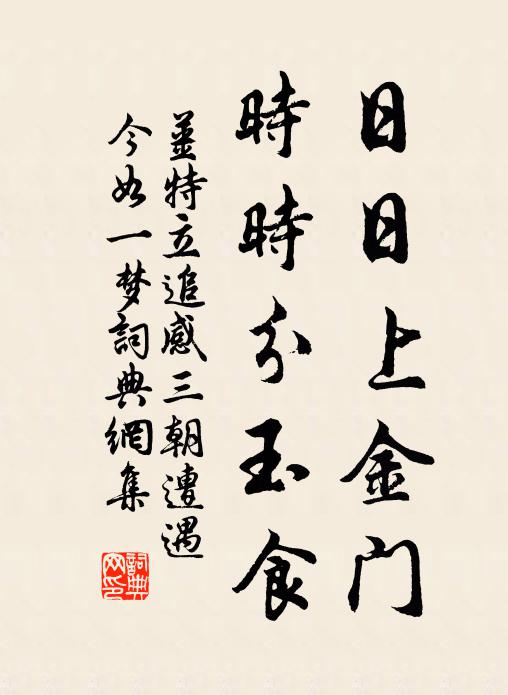 日日上金門
時時分玉食
姜特立追感三朝遭遇
今如一梦詞典網集
詞典网印